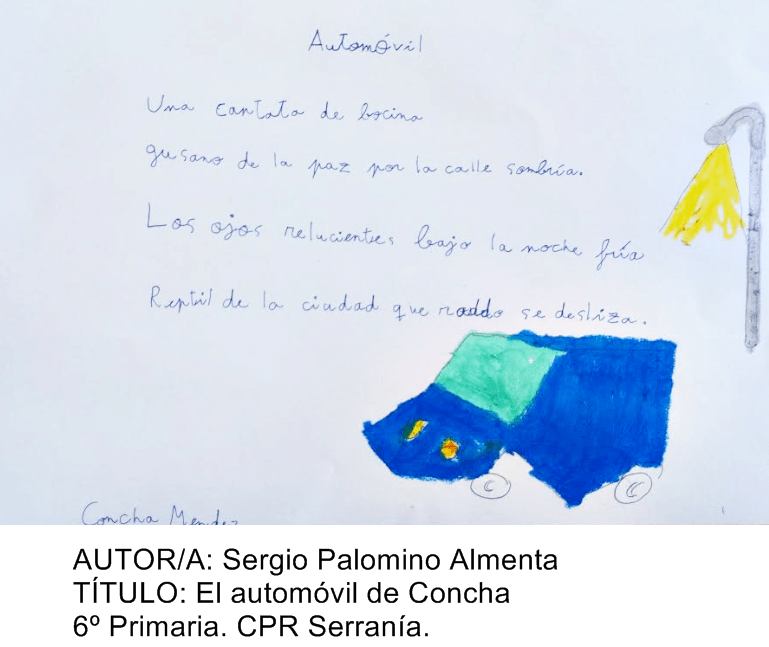 Automóvil
Una cantata de bocina
gusano de la paz por la calle sombría.
Los ojos relucientes bajo la noche fría
Reptil de la ciudad que raddo se desliza.
Concha Mendez
AUTOR/A: Sergio Palomino Almenta
TÍTULO: El automóvil de Concha
6º Primaria. CPR Serranía.